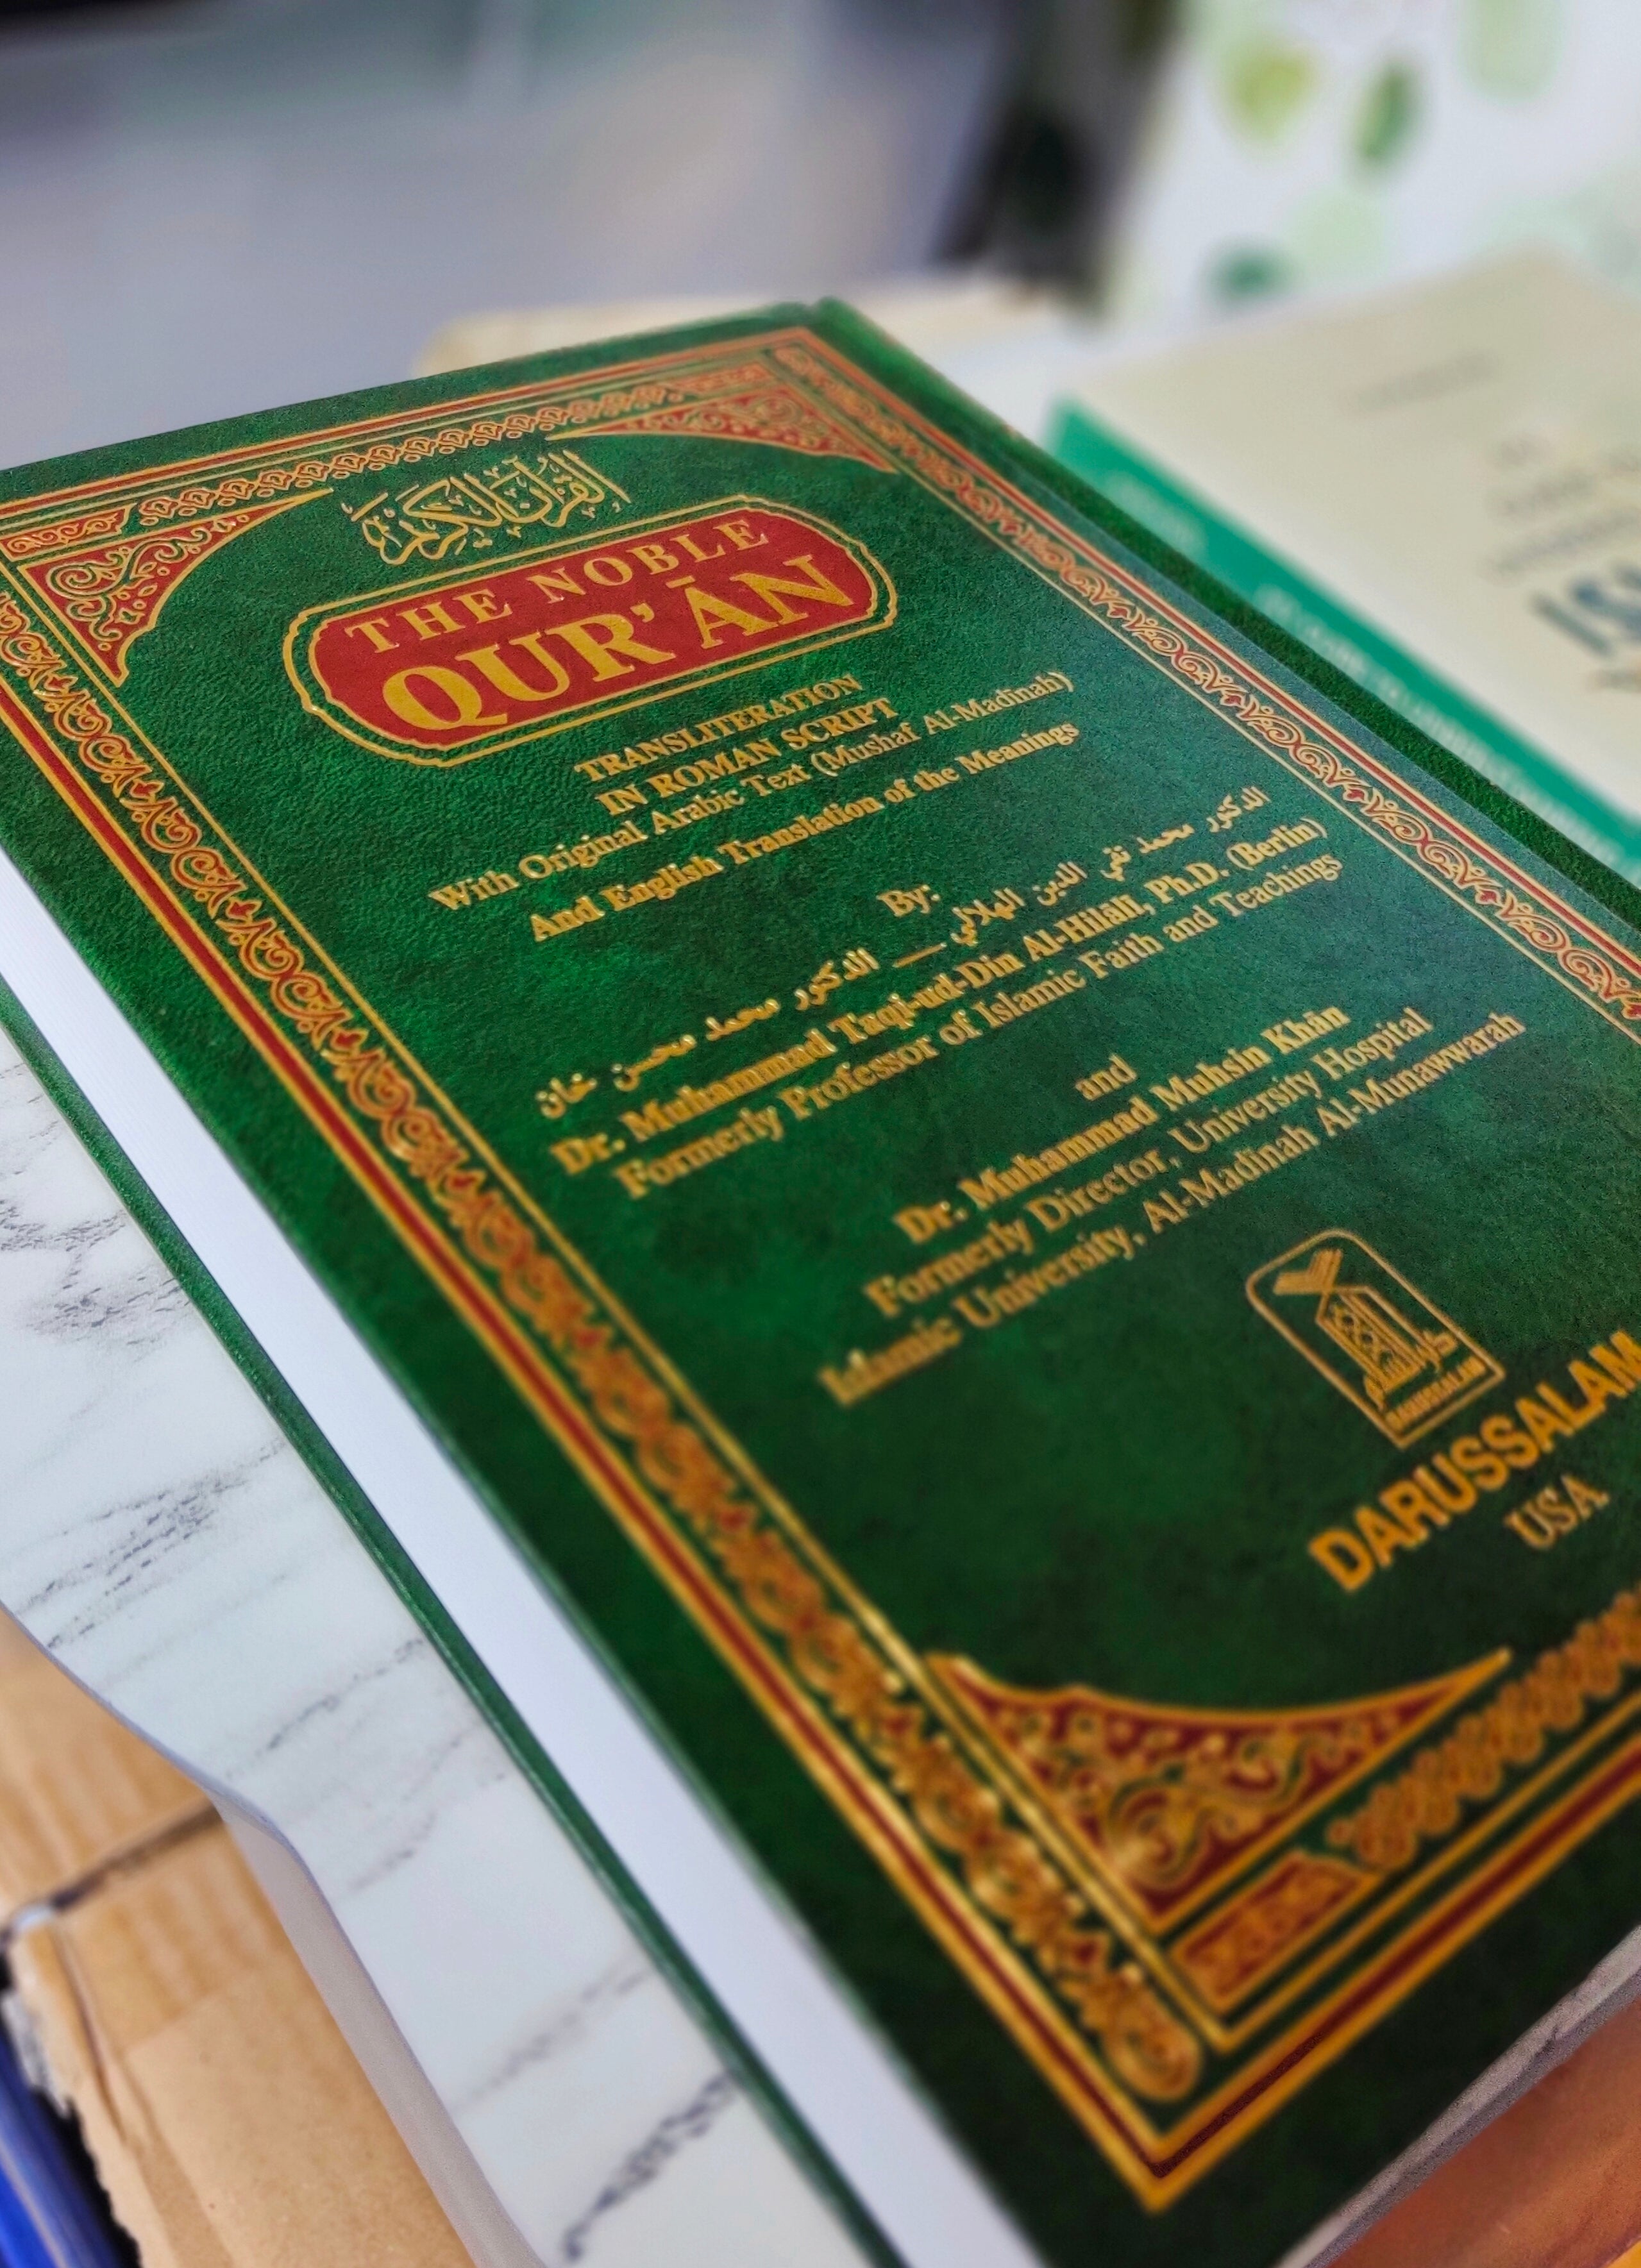 القرآن الكريم
THE NOBLE
QUR'ĀN
TRANSLITERATION
IN ROMAN SCRIPT
With Original Arabic Text (Mushaf Al-Madinah)
And English Translation of the Meanings
By:
الدكتور محمد تقي الدين الهلالي — الدكتور محمد محسن خان
Dr. Muhammad Taqi-ud-Din Al-Hilali, Ph.D. (Berlin)
Formerly Professor of Islamic Faith and Teachings
and
Dr. Muhammad Muhsin Khân
Formerly Director, University Hospital
Islamic University, Al-Madinah Al-Munawwarah
دارالسلام
DARUSSALAM
DARUSSALAM
USA